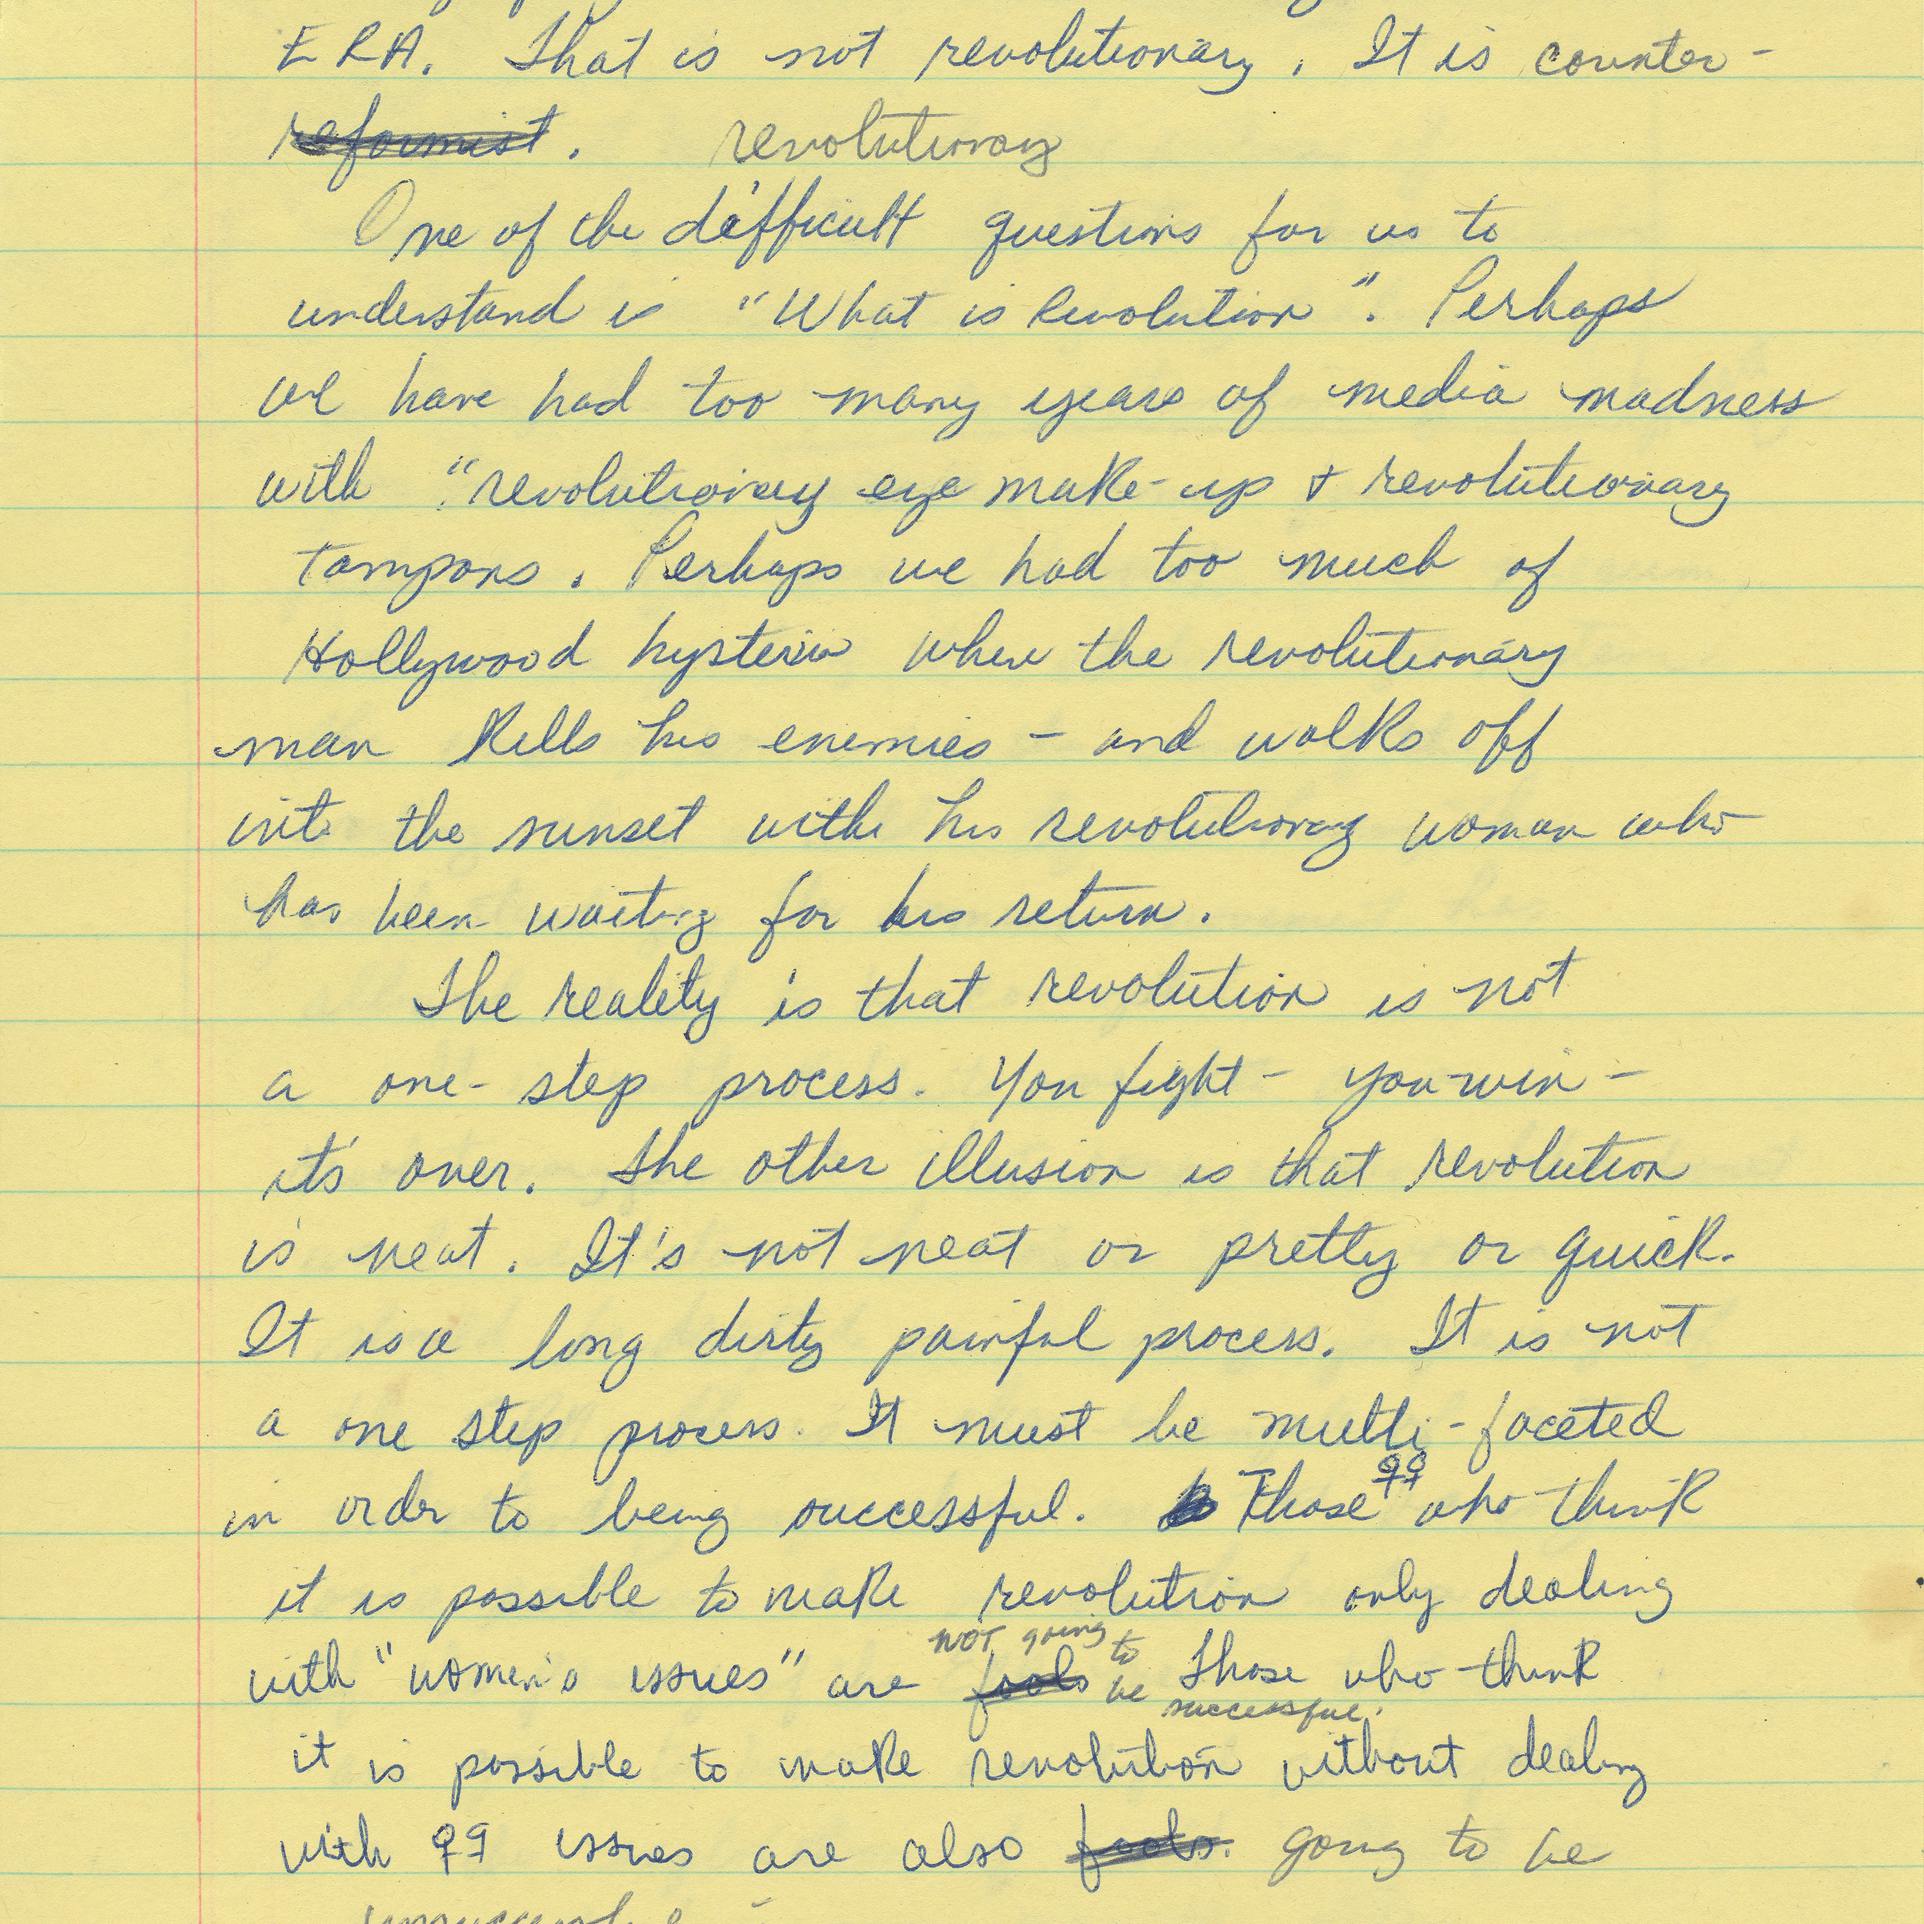 ERA. That is not revolutionary. It is counter-
reformist. revolutionary
One of the difficult questions for us to
understand is "What is Revolution". Perhaps
we have had too many years of media madness
with "revolutionary eye make-up + revolutionary
tampons. Perhaps we had too much of
Hollywood hysteria where the revolutionary
man kills his enemies - and walks off
into the sunset with his revolutionary woman who
has been waiting for his return.
The reality is that revolution is not
a one-step process. You fight - you win -
it's over. The other illusion is that revolution
is neat. It's not neat or pretty or quick.
It is a long dirty painful process. It is not
a one step process. It must be multi-faceted
in order to being successful. Those ♀♀ who think
it is possible to make revolution only dealing
with "women's issues" are fools not going to be successful. Those who think
it is possible to make revolution without dealing
with ♀♀ issues are also fools. going to be